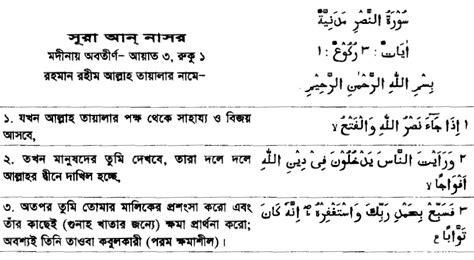 সূরা আন্ নাসর
মদীনায় অবতীর্ণ- আয়াত ৩, রুকু ১
রহমান রহীম আল্লাহ তায়ালার নামে-
سُوْرَةُ النَّصْرِ مَدَنِيَّةٌ
اٰيَاتٌ : ٣ رُكُوْعٌ : ١
بِسْمِ اللّٰهِ الرَّحْمٰنِ الرَّحِيْمِ
১. যখন আল্লাহ তায়ালার পক্ষ থেকে সাহায্য ও বিজয়
আসবে,
١ اِذَا جَآءَ نَصْرُ اللّٰهِ وَالْفَتْحُ لا
২. তখন মানুষদের তুমি দেখবে, তারা দলে দলে
আল্লাহর দ্বীনে দাখিল হচ্ছে,
٢ وَرَاَيْتَ النَّاسَ يَدْخُلُوْنَ فِىْ دِيْنِ اللّٰهِ
اَفْوَاجًا لا
৩. অতপর তুমি তোমার মালিকের প্রশংসা করো এবং
তাঁর কাছেই (গুনাহ খাতার জন্যে) ক্ষমা প্রার্থনা করো;
অবশ্যই তিনি তাওবা কবুলকারী (পরম ক্ষমাশীল)।
٣ فَسَبِّحْ بِحَمْدِ رَبِّكَ وَاسْتَغْفِرْهُ ط اِنَّهٗ كَانَ
تَوَّابًا ع